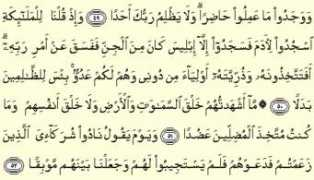 وَوَجَدُوا۟ مَا عَمِلُوا۟ حَاضِرًا ۗ وَلَا يَظْلِمُ رَبُّكَ أَحَدًا ٤٩ وَإِذْ قُلْنَا لِلْمَلَٰٓئِكَةِ
ٱسْجُدُوا۟ لِـَٔادَمَ فَسَجَدُوٓا۟ إِلَّآ إِبْلِيسَ كَانَ مِنَ ٱلْجِنِّ فَفَسَقَ عَنْ أَمْرِ رَبِّهِۦٓ ۗ
أَفَتَتَّخِذُونَهُۥ وَذُرِّيَّتَهُۥٓ أَوْلِيَآءَ مِن دُونِى وَهُمْ لَكُمْ عَدُوٌّۢ ۚ بِئْسَ لِلظَّٰلِمِينَ
بَدَلًا ٥٠ ۞ مَّآ أَشْهَدتُّهُمْ خَلْقَ ٱلسَّمَٰوَٰتِ وَٱلْأَرْضِ وَلَا خَلْقَ أَنفُسِهِمْ وَمَا
كُنتُ مُتَّخِذَ ٱلْمُضِلِّينَ عَضُدًا ٥١ وَيَوْمَ يَقُولُ نَادُوا۟ شُرَكَآءِىَ ٱلَّذِينَ
زَعَمْتُمْ فَدَعَوْهُمْ فَلَمْ يَسْتَجِيبُوا۟ لَهُمْ وَجَعَلْنَا بَيْنَهُم مَّوْبِقًا ٥٢